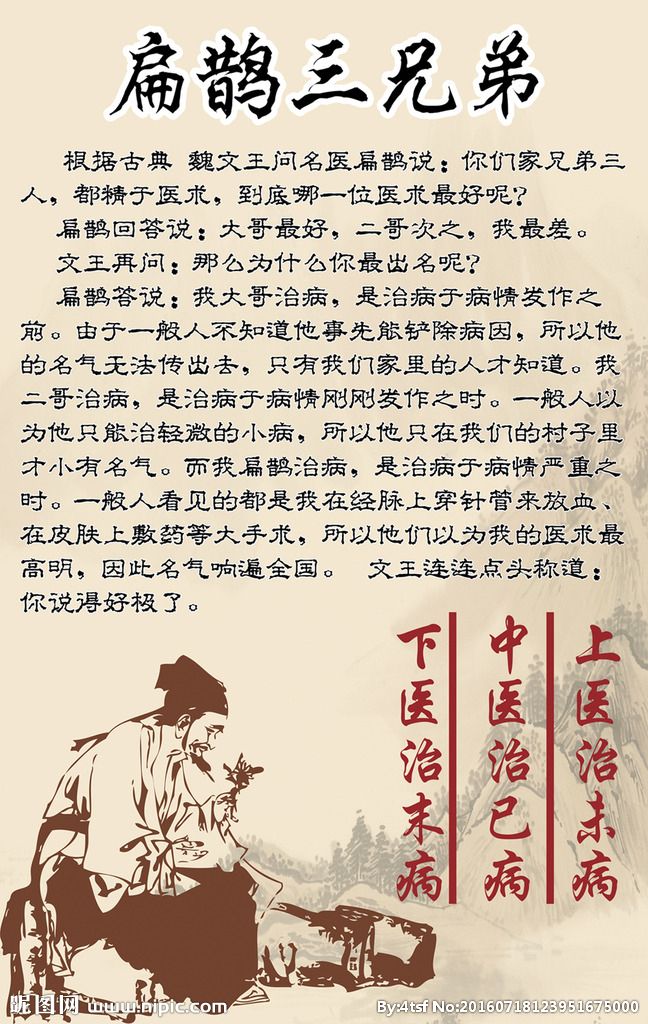 扁鹊三兄弟
根据古典 魏文王问名医扁鹊说：你们家兄弟三
人，都精于医术，到底哪一位医术最好呢？
扁鹊回答说：大哥最好，二哥次之，我最差。
文王再问：那么为什么你最出名呢？
扁鹊答说：我大哥治病，是治病于病情发作之
前。由于一般人不知道他事先能铲除病因，所以他
的名气无法传出去，只有我们家里的人才知道。我
二哥治病，是治病于病情刚刚发作之时。一般人以
为他只能治轻微的小病，所以他只在我们的村子里
才小有名气。而我扁鹊治病，是治病于病情严重之
时。一般人看见的都是我在经脉上穿针管来放血、
在皮肤上敷药等大手术，所以他们以为我的医术最
高明，因此名气响遍全国。 文王连连点头称道：
你说得好极了。
上医治未病
中医治已病
下医治末病
昵图网 www.nipic.com
By:4tsf No:20160718123951675000